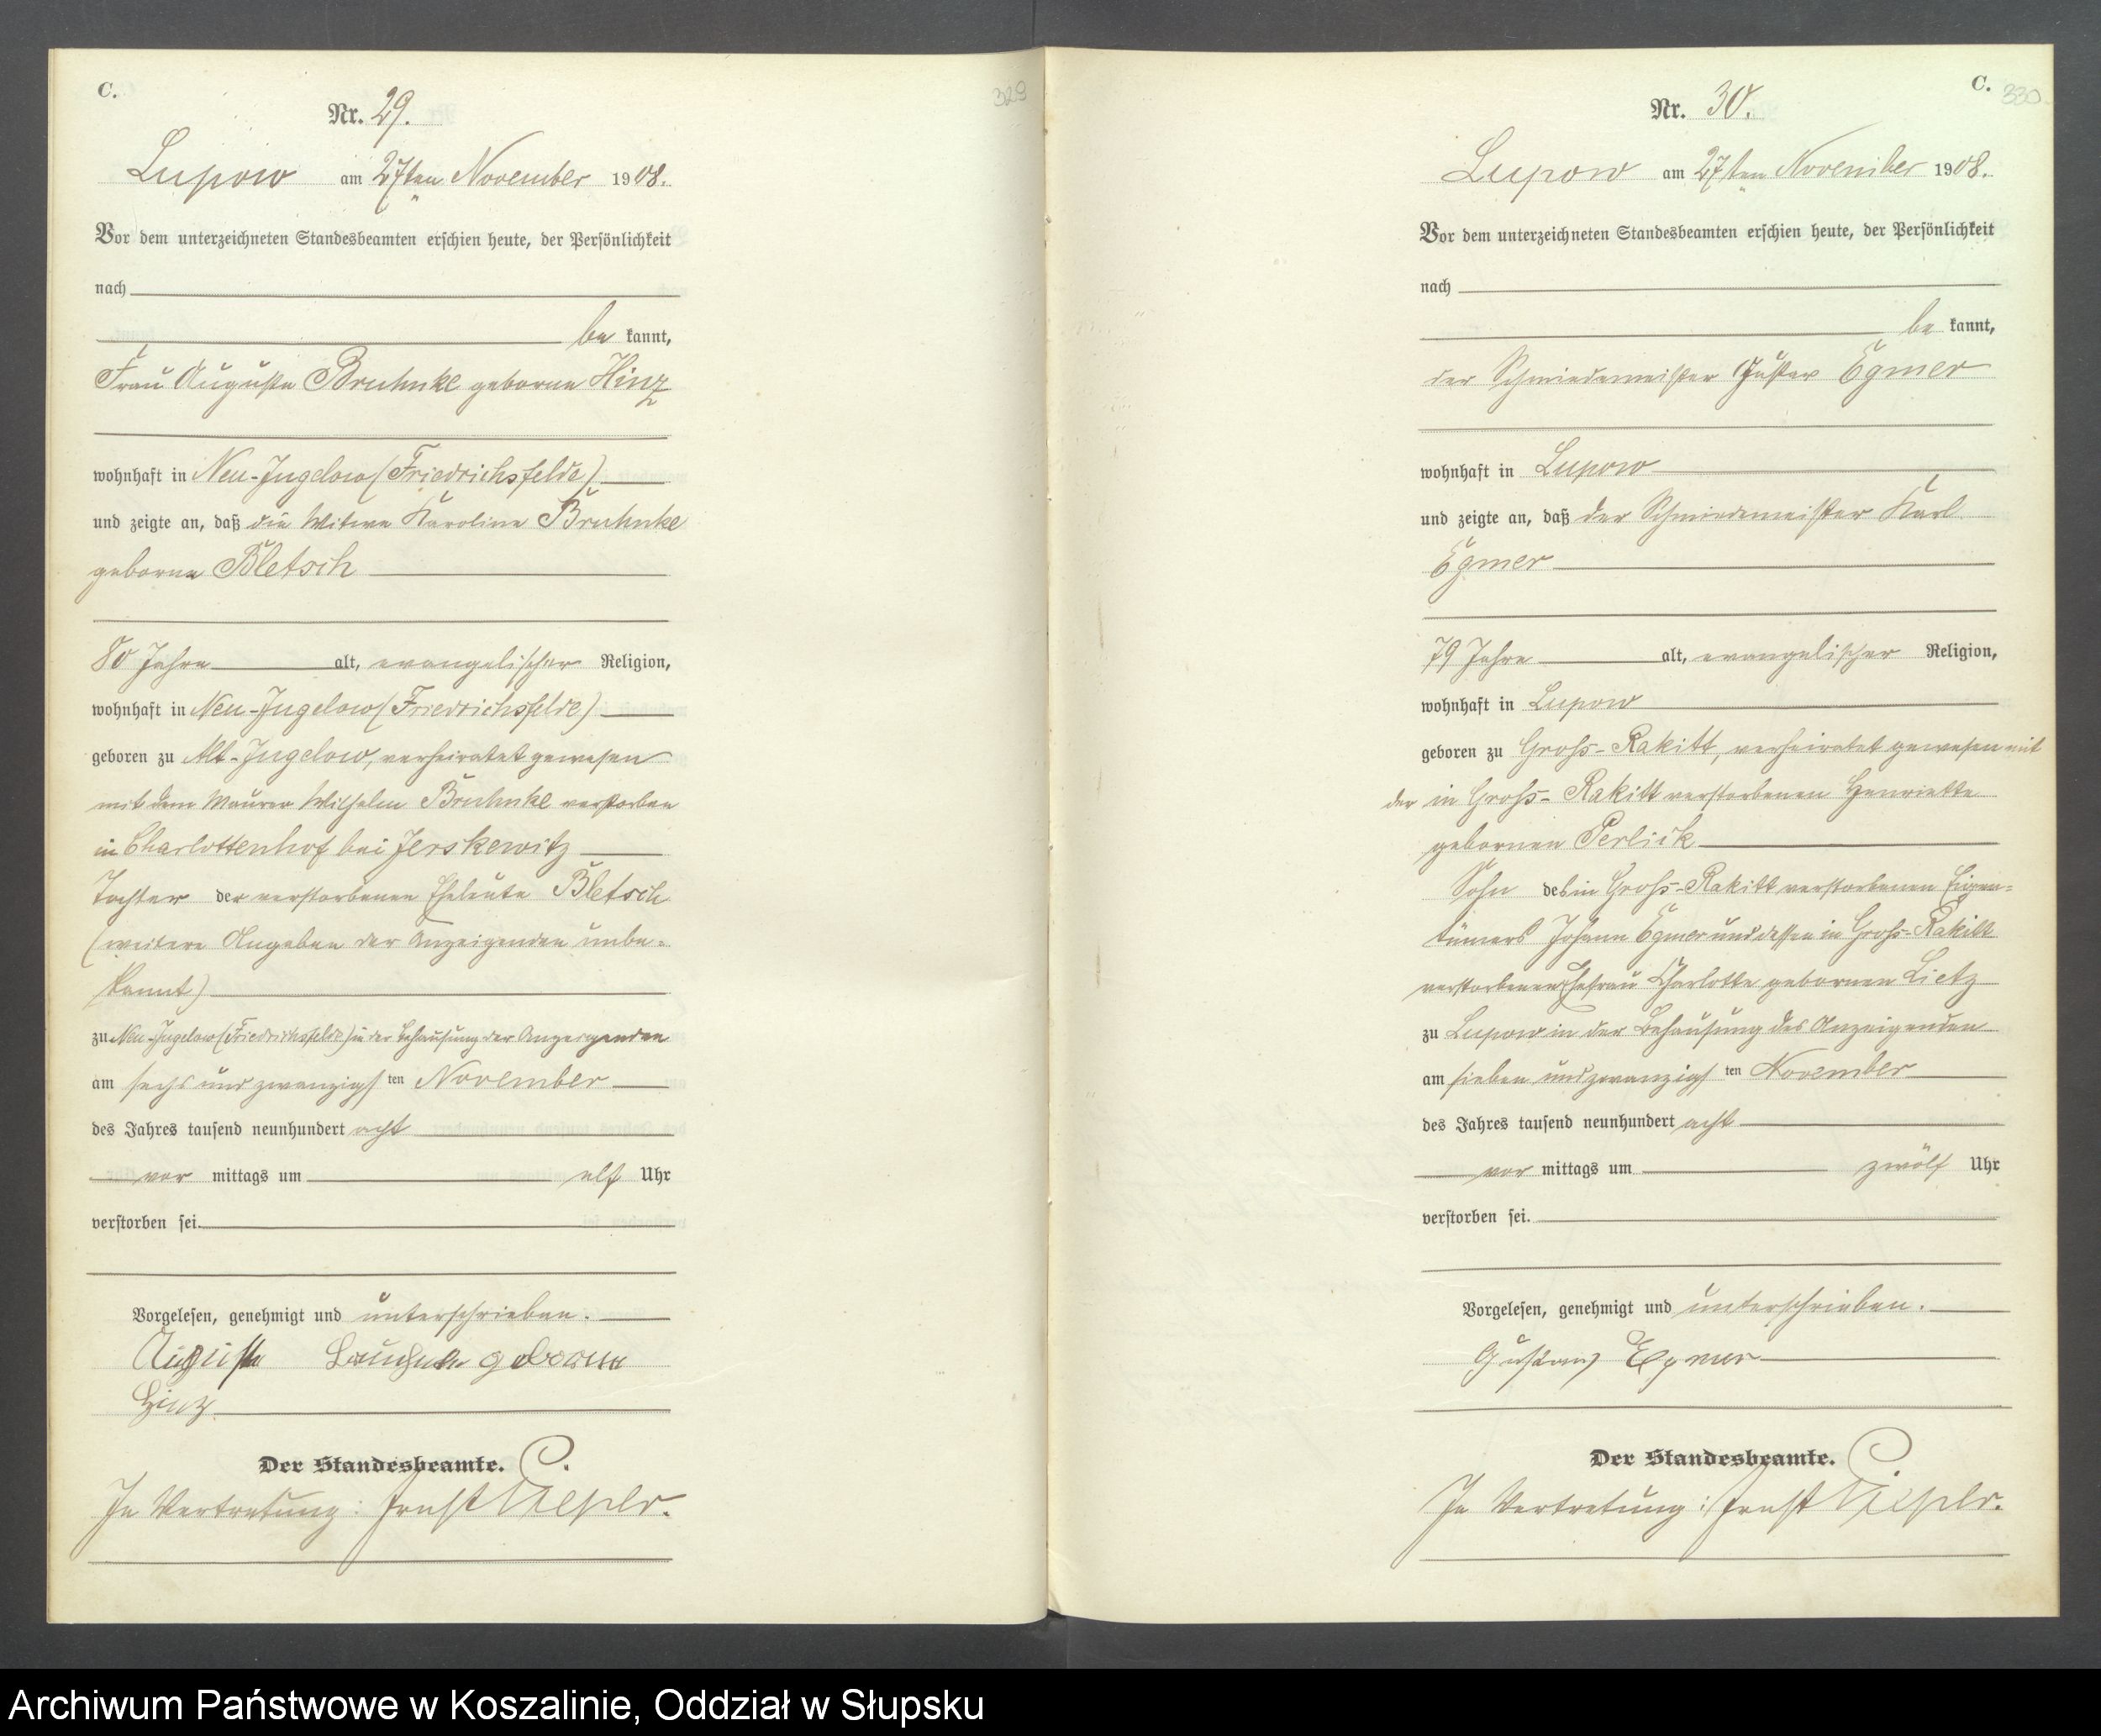 C.
329
Nr. 29.
Lupow am 27ten November 1908.
Vor dem unterzeichneten Standesbeamten erschien heute, der Persönlichkeit
nach
be kannt,
Frau Auguste Bruhnke geborne Hinz
wohnhaft in Neu-Jugelow (Friedrichsfelde)
und zeigte an, daß die Witwe Karoline Bruhnke
geborne Bletsch
80 Jahre alt, evangelischer Religion,
wohnhaft in Neu-Jugelow (Friedrichsfelde)
geboren zu Alt-Jugelow, verheiratet gewesen
mit dem Maurer Wilhelm Bruhnke verstorben
in Charlottenhof bei Jerskewitz
Tochter der verstorbenen Eheleute Bletsch
(weitere Angaben der Anzeigenden unbe-
kannt)
zu Neu-Jugelow (Friedrichsfelde) in der Behausung der Anzeigenden
am sechs und zwanzigsten November
des Jahres tausend neunhundert acht
vor mittags um elf Uhr
verstorben sei.
Vorgelesen, genehmigt und unterschrieben.
Auguste Bruhnke geborne
Hinz
Der Standesbeamte.
In Vertretung: Ernst Pieplr.
C.
330
Nr. 30.
Lupow am 27ten November 1908.
Vor dem unterzeichneten Standesbeamten erschien heute, der Persönlichkeit
nach
be kannt,
der Schmiedemeister Gustav Egmer
wohnhaft in Lupow
und zeigte an, daß der Schmiedemeister Karl
Egmer
79 Jahre alt, evangelischer Religion,
wohnhaft in Lupow
geboren zu Groß-Rakitt, verheiratet gewesen mit
der in Groß-Rakitt verstorbenen Henriette
gebornen Perlick
Sohn des in Groß-Rakitt verstorbenen Eigen-
tümers Johann Egmer und dessen in Groß-Rakitt
verstorbenen Ehefrau Charlotte gebornen Lietz
zu Lupow in der Behausung des Anzeigenden
am sieben und zwanzigsten November
des Jahres tausend neunhundert acht
vor mittags um zwölf Uhr
verstorben sei.
Vorgelesen, genehmigt und unterschrieben.
Gustav Egmer
Der Standesbeamte.
In Vertretung: Ernst Pieplr.
Archiwum Państwowe w Koszalinie, Oddział w Słupsku